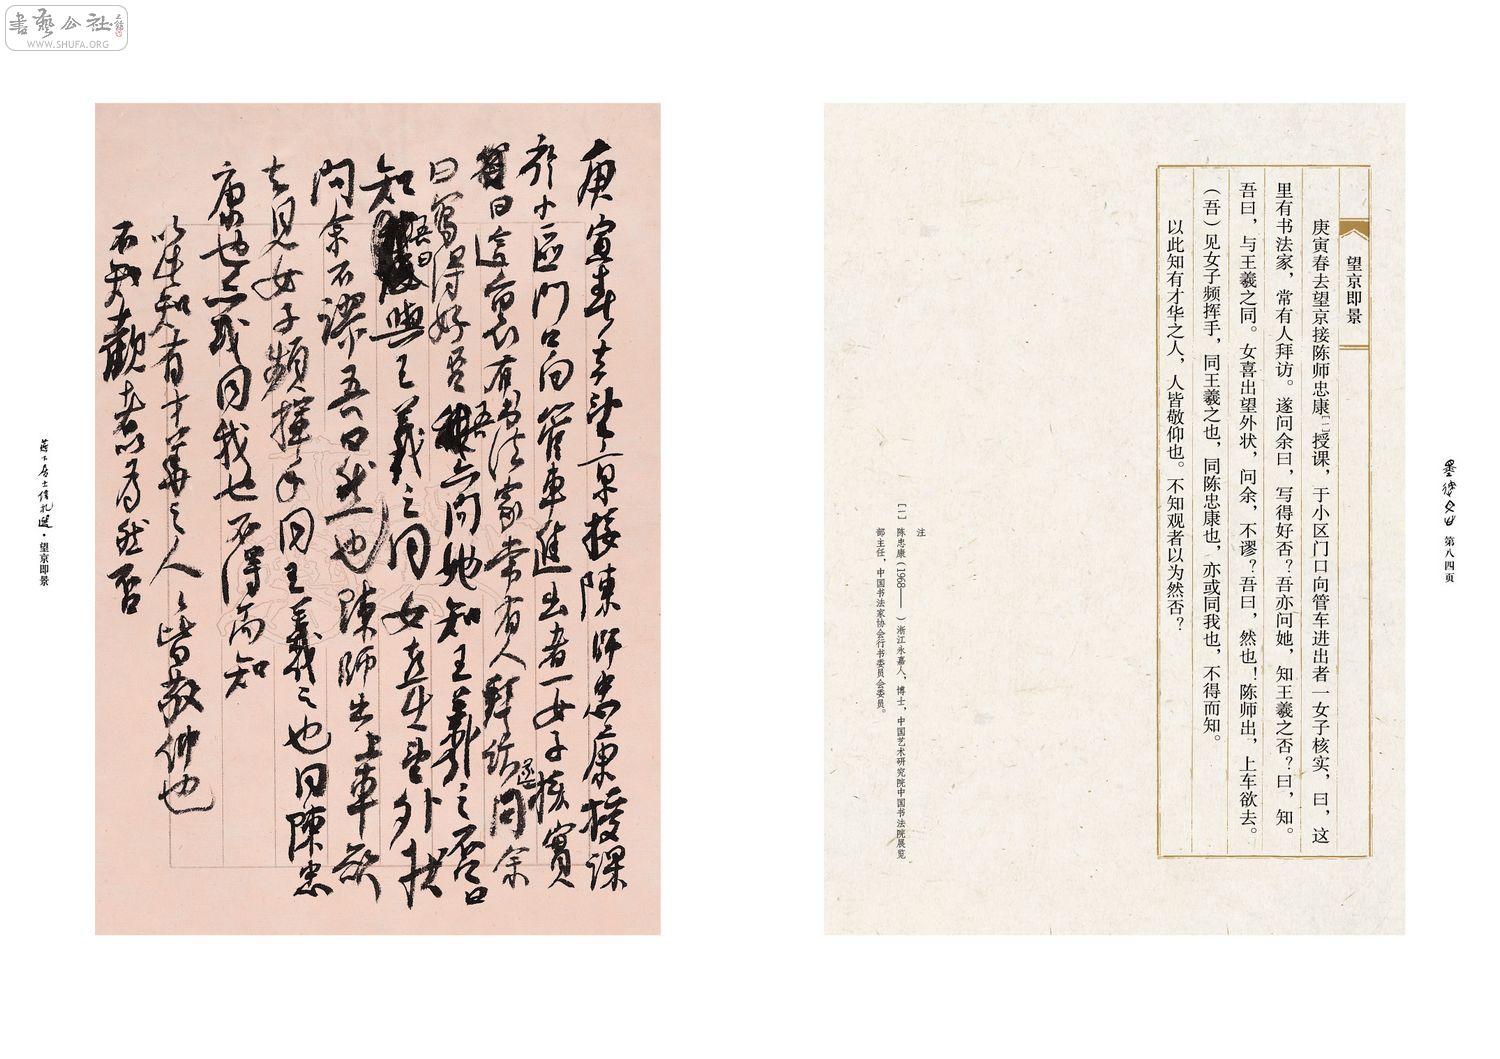 書藝公社
WWW.SHUFA.ORG
第八四页
望京即景
庚寅春去望京接陈师忠康[一]授课，于小区门口向管车进出者一女子核实，曰，这
里有书法家，常有人拜访。遂问余曰，写得好否？吾亦问她，知王羲之否？曰，知。
吾曰，与王羲之同。女喜出望外状，问余，不谬？吾曰，然也！陈师出，上车欲去。
（吾）见女子频挥手，同王羲之也，同陈忠康也，亦或同我也，不得而知。
以此知有才华之人，人皆敬仰也。不知观者以为然否？
注
[一] 陈忠康（1968—— ）浙江永嘉人，博士，中国艺术研究院中国书法院展览
部主任，中国书法家协会行书委员会委员。
庚寅春去望京接陳師忠康授課
於小區門口向管車進出者一女子核實
曰這裏有書法家常有人拜訪遂問余
曰寫得好否吾亦問她知王羲之否曰
知吾曰與王羲之同女喜出望外狀
問余不謬吾曰然也陳師出上車欲
去見女子頻揮手同王羲之也同陳忠
康也亦或同我也不得而知
以此知有才華之人人皆敬仰也
不知觀者以為然否
居士信札選·望京即景